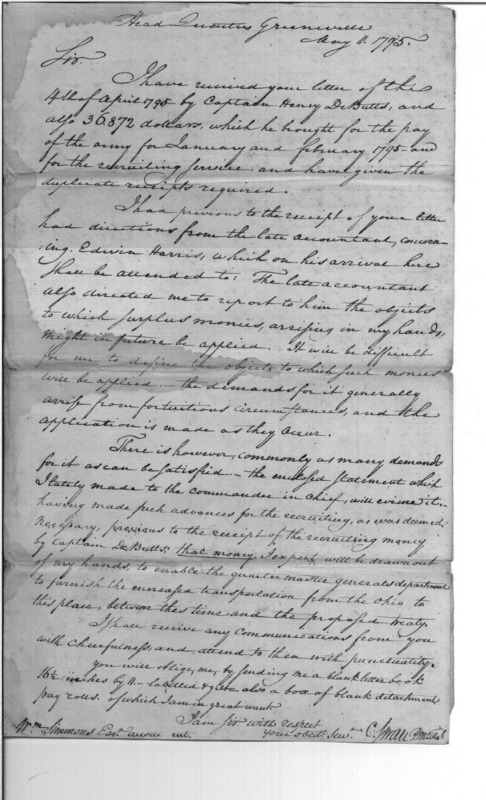 Head Quarters Greenville
May 11. 1795.
Sir
I have received your letter of the
4th of April 1795 by Captain Henry DeButts, and
also 36.872 dollars, which he brought for the pay
of the army for January and february 1795 and
for the recruiting service and have given the
duplicate receipts required.
I had previous to the receipt of your letter
had directions from the late accountant, concern-
ing Edwin Harris, which on his arrival here
shall be attended to: The late accountant
also directed me to report to him the objects
to which surplus monies, arrising in my hands,
might in future be applied. It will be difficult
for me to define the objects to which such monies
will be applied — the demands for it generally
arrise from fortuitious circumstances, and the
application is made as they occur.
There is however, commonly as many demands
for it as can be satisfied — the enclosed statement which
I lately made to the commander in Chief, will evince it —
having made such advances for the recruiting, as was deemed
necessary, previous to the receipt of the recruiting money
by Captain DeButts, that money, I expect will be drawn out
of my hands, to enable the quarter master generals department
to furnish the encreased transportation from the Ohio to
this place, between this time and the proposed treaty.
I shall receive any Communications from you
with chearfulness, and attend to them with punctuality.
You will oblige, me, by sending me a blank letter book
16½ inches by 11 — labelled also a box of blank detachment
pay rolls. of which I am in great want
I am Sir with respect
Your obedt. Servt. C. Swan
Wm. Simmons Esqr.